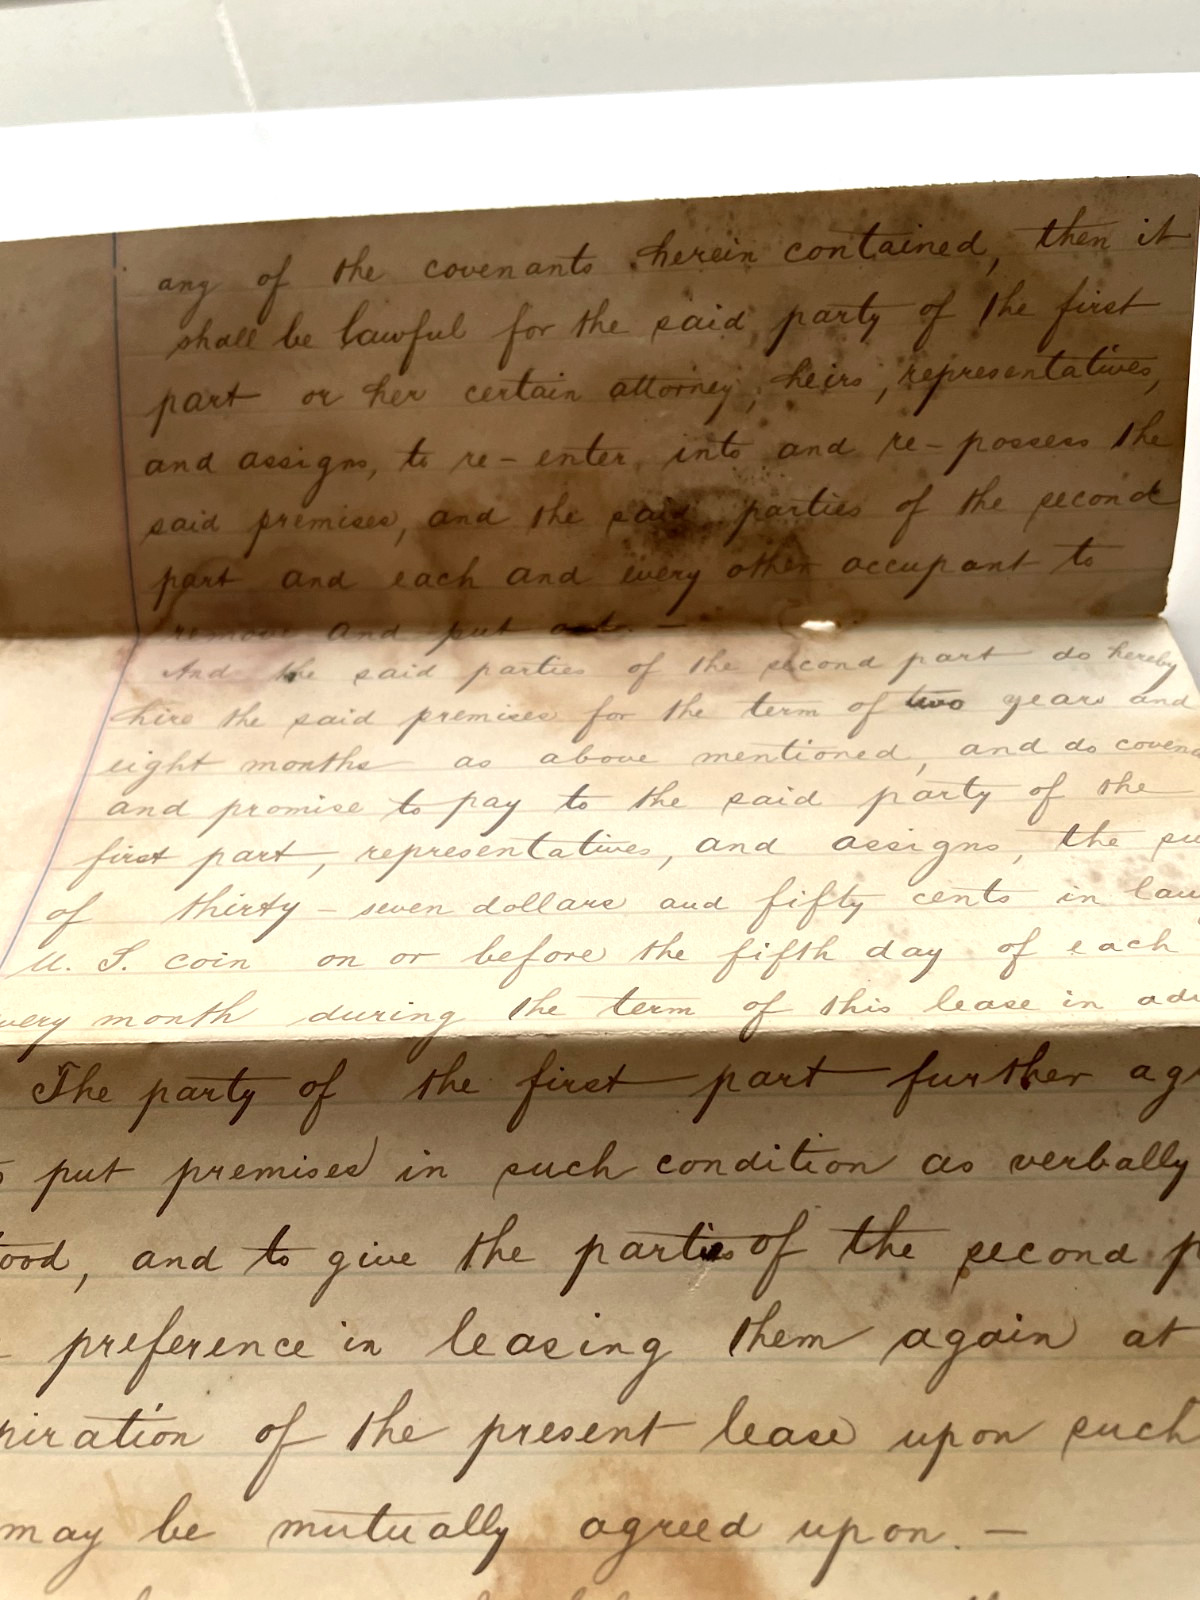 any of the covenants herein contained, then it
shall be lawful for the said party of the first
part or her certain attorney, heirs, representatives,
and assigns, to re-enter into and re-possess the
said premises, and the said parties of the second
part and each and every other occupant to
remove and put out. —
And the said parties of the second part do hereby
hire the said premises for the term of two years and
eight months as above mentioned, and do coven
and promise to pay to the said party of the
first part, representatives, and assigns, the su
of thirty-seven dollars and fifty cents in law
U. S. coin on or before the fifth day of each
very month during the term of this lease in adv
The party of the first part further ag
put premises in such condition as verbally
ood, and to give the parties of the second p
preference in leasing them again at
piration of the present lease upon such
may be mutually agreed upon. —